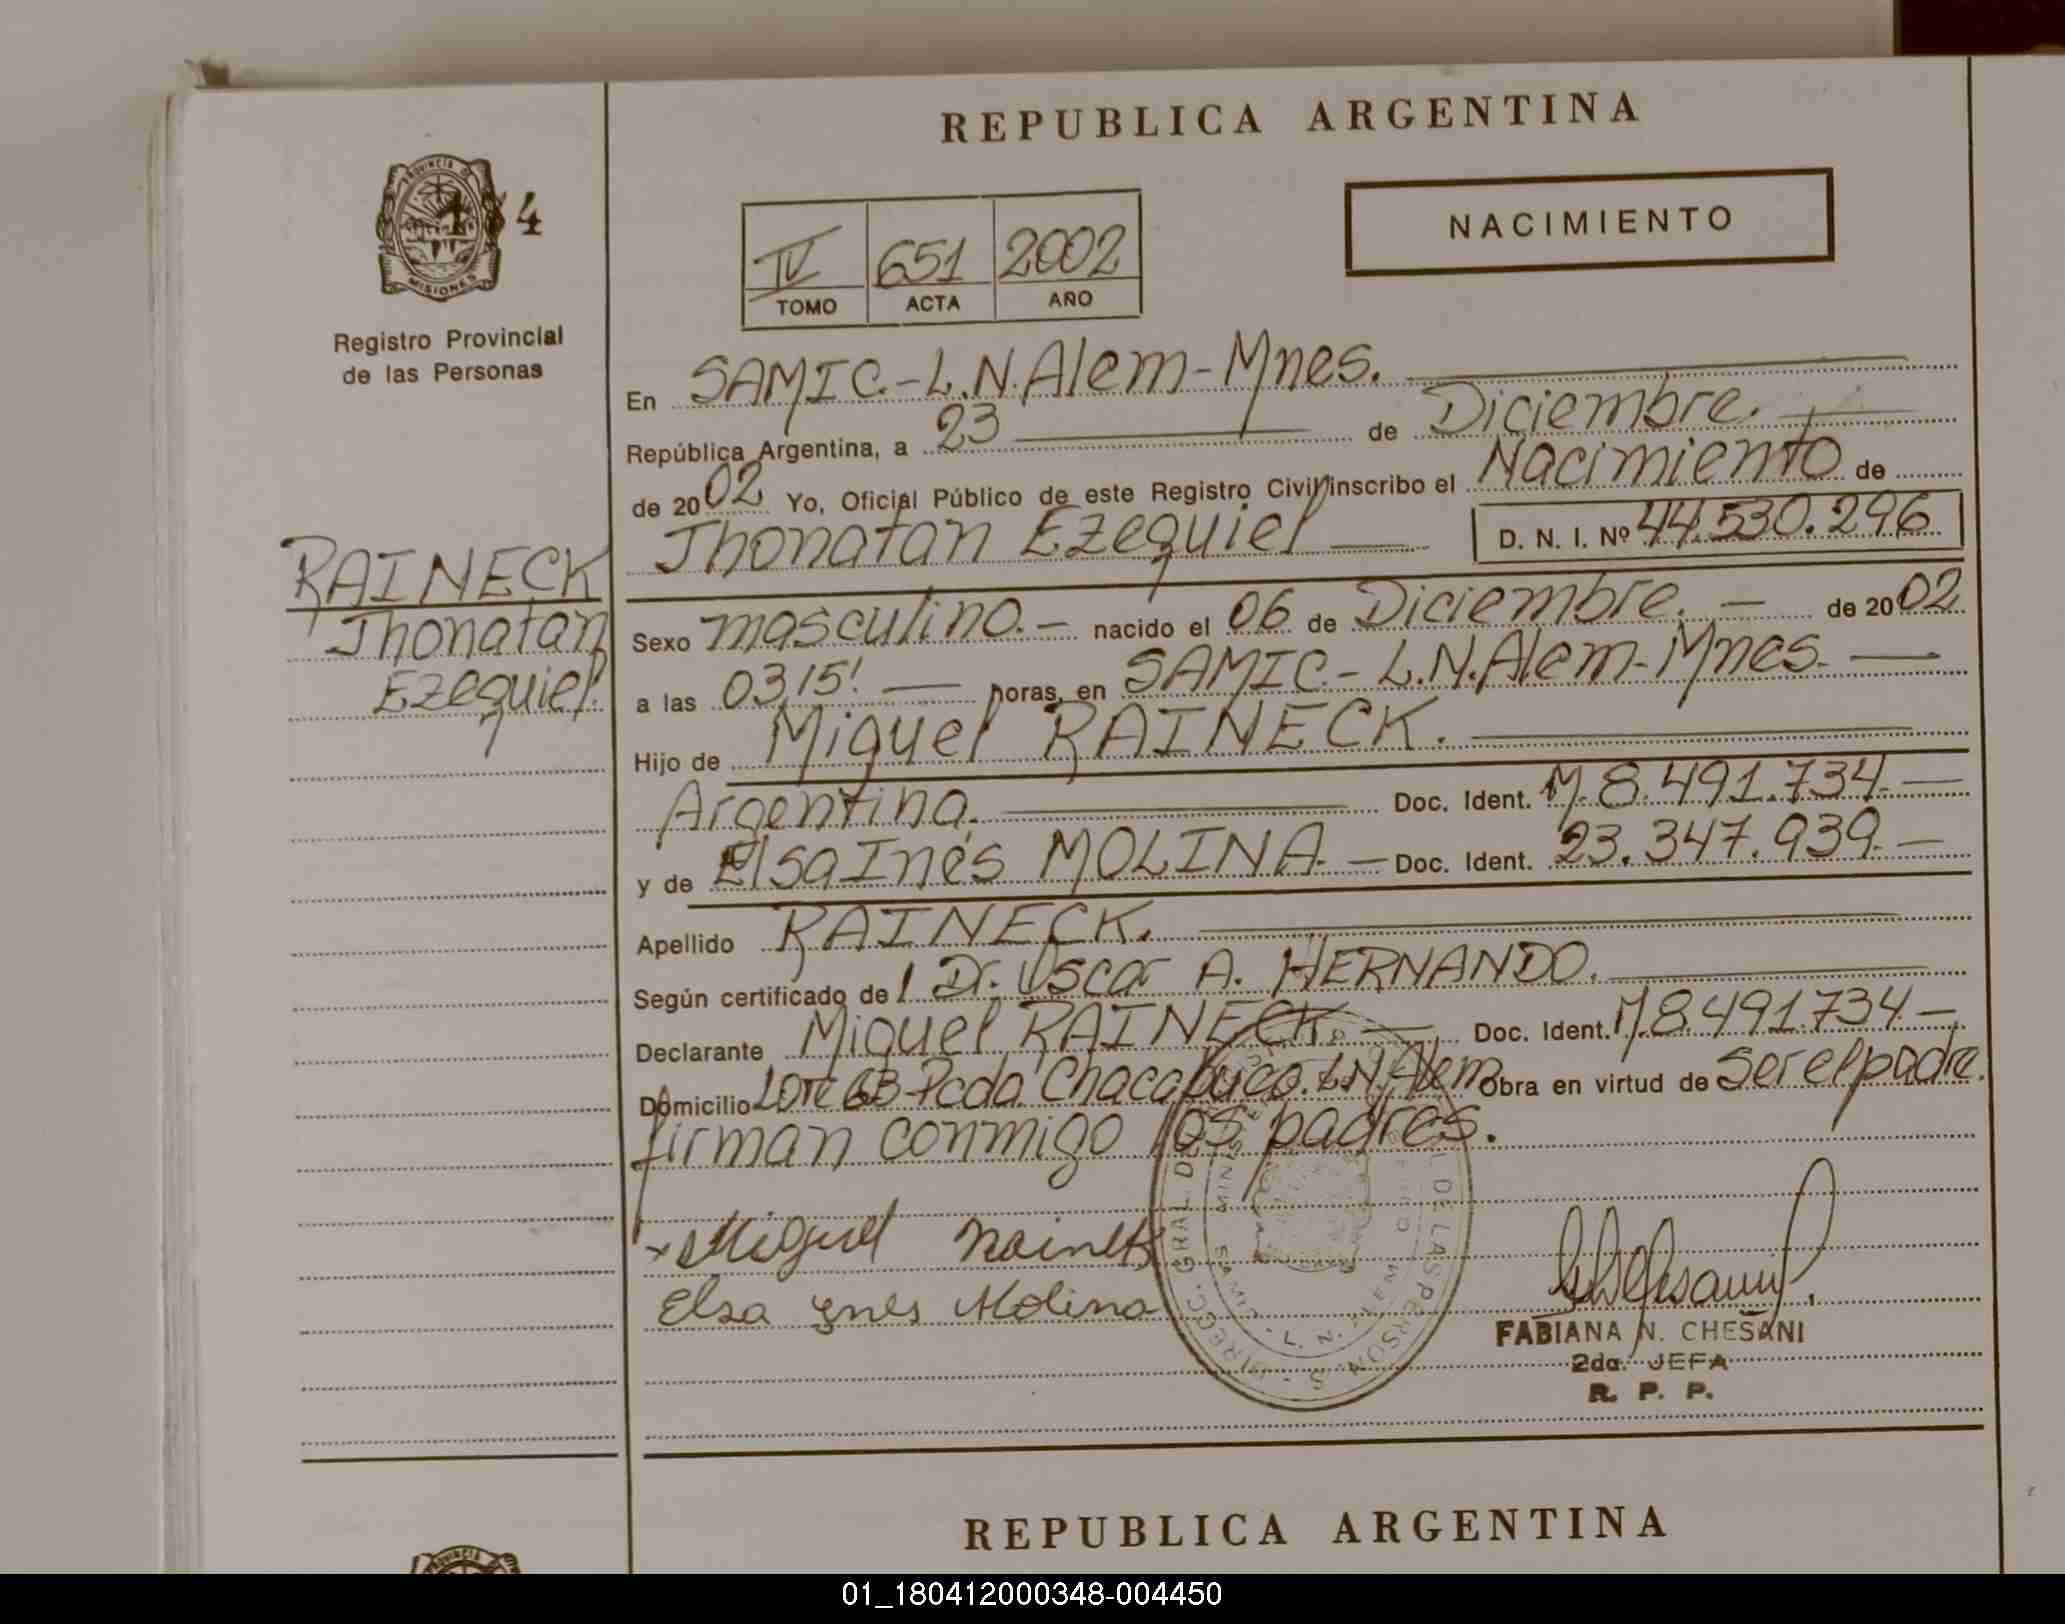 REPUBLICA ARGENTINA
PROVINCIA DE
MISIONES
4
Registro Provincial
de las Personas
IV 651 2002
TOMO ACTA AÑO
NACIMIENTO
En SAMIC.-L.N.Alem-Mnes.
República Argentina, a 23 de Diciembre.
de 2002 Yo, Oficial Público de este Registro Civil inscribo el Nacimiento de
Jhonatan Ezequiel D. N. I. Nº 44.530.296
RAINECK
Jhonatan
Ezequiel.
Sexo masculino.- nacido el 06 de Diciembre. - de 2002
a las 03,15'. horas, en SAMIC.-L.N.Alem-Mnes.
Hijo de Miguel RAINECK.
Argentina. Doc. Ident. M.8.491.734.-
y de Elsa Inés MOLINA.- Doc. Ident. 23.347.939.-
Apellido RAINECK.
Según certificado de l Dr. Oscar A. HERNANDO.
Declarante Miguel RAINECK.- Doc. Ident. M8.491.734.-
Domicilio Lote 63-Pcda. Chacabuco. L.N. Alem Obra en virtud de ser el padre.
firman conmigo los padres.
Miguel Raineck
Elsa ynes Molina
DIRECC. GRAL. DE LAS PERSONAS
FABIANA N. CHESANI
2da. JEFA
R. P. P.
REPUBLICA ARGENTINA
PROVINCIA
01_180412000348-004450